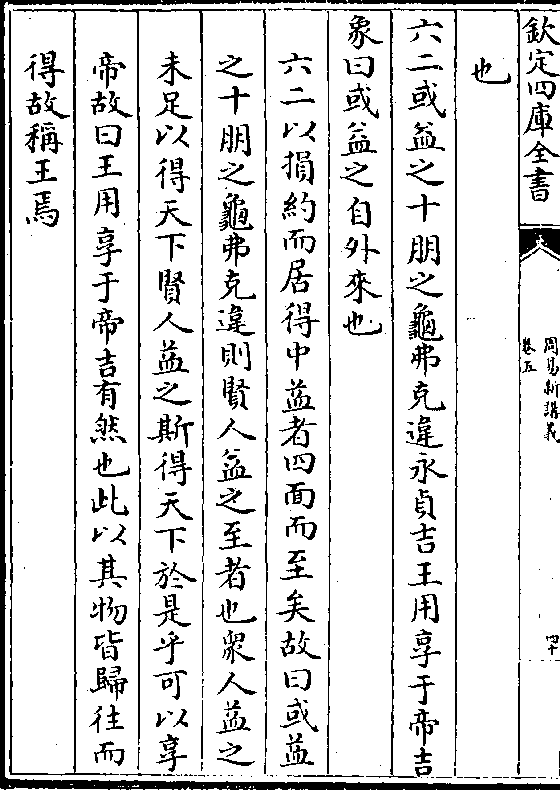 欽定四庫全書
周易新講義
卷五
四十
也
六二或益之十朋之龜弗克違永貞吉王用享于帝吉
象曰或益之自外來也
六二以損約而居得中益者四面而至矣故曰或益
之十朋之龜弗克違則賢人益之至者也衆人益之
未足以得天下賢人益之斯得天下於是乎可以享
帝故曰王用享于帝吉有然也此以其物皆歸往而
得故稱王焉